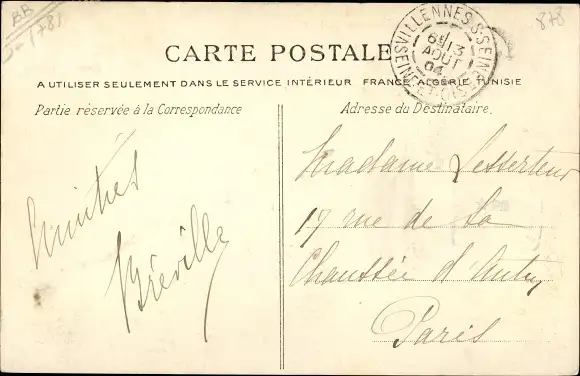 BB
1781
878
VILLENNES-S-SEINE
6E/13
AOUT
04
SEINE-ET-OISE
CARTE POSTALE
A UTILISER SEULEMENT DANS LE SERVICE INTÉRIEUR FRANCE, ALGÉRIE, TUNISIE
Partie réservée à la Correspondance
Adresse du Destinataire.
Amitiés
Bréville
Madame Lesserteur
17 rue de la
Chaussée d'Antin
Paris